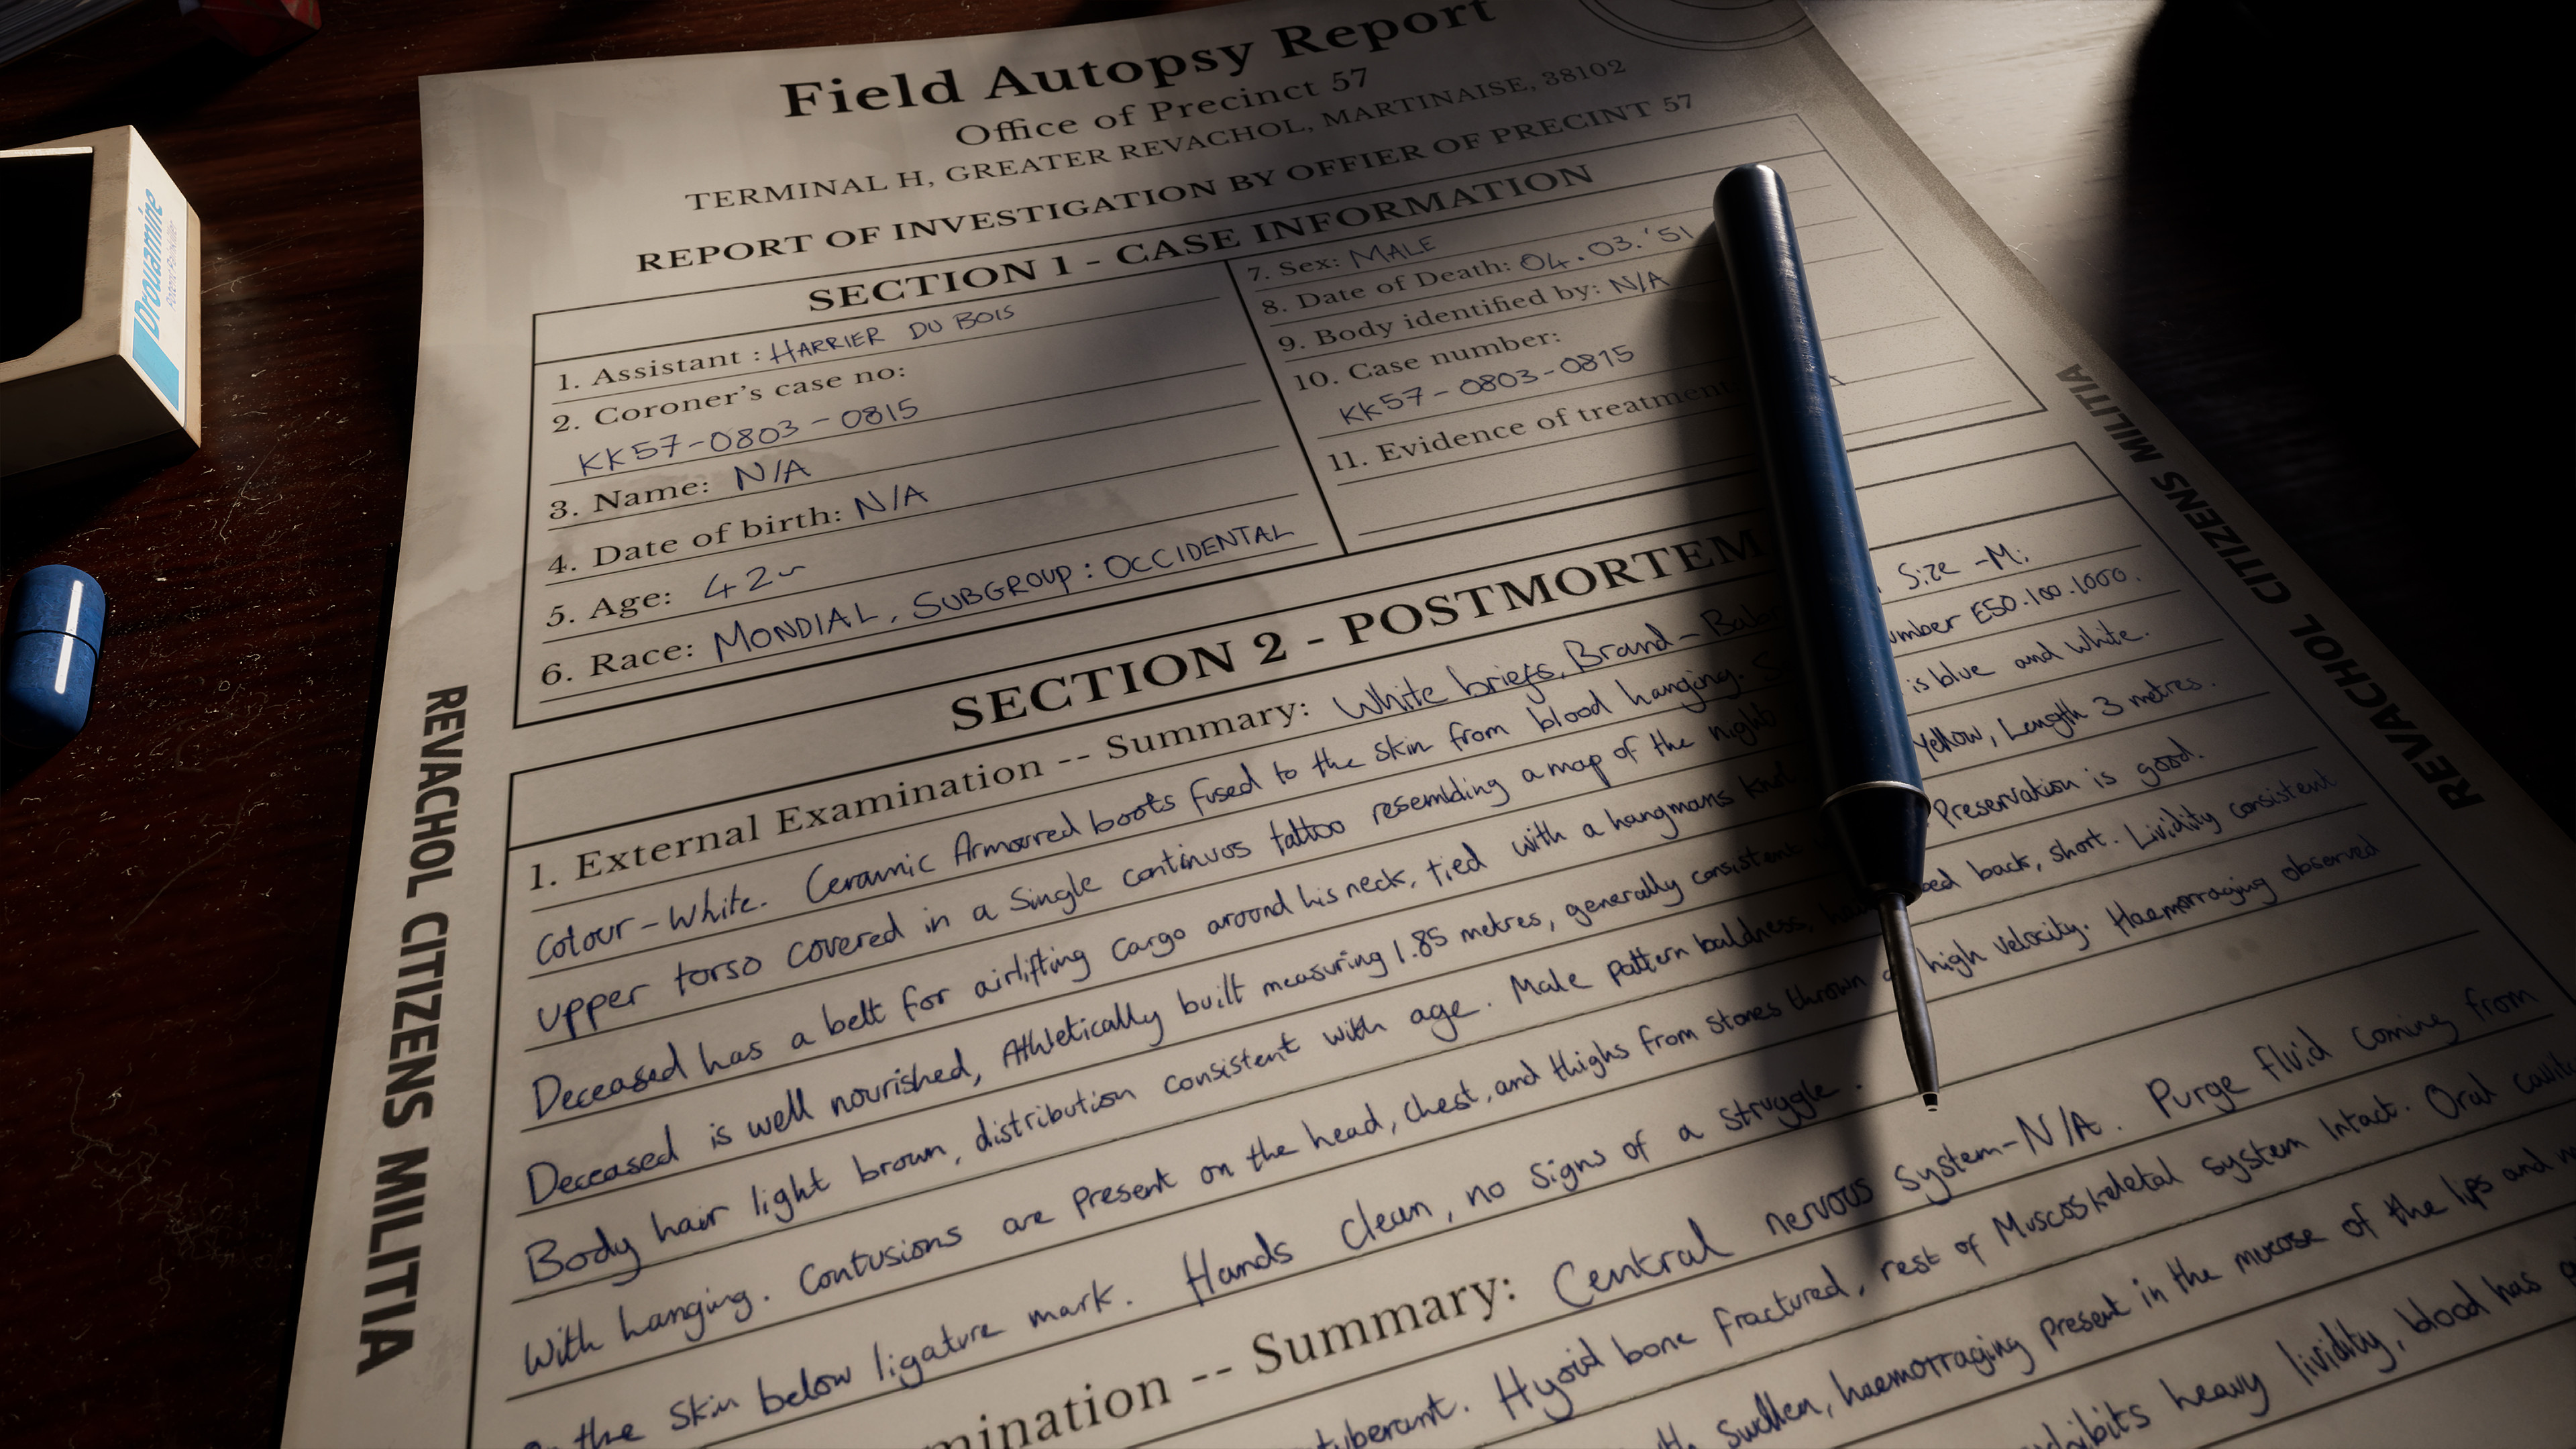 Field Autopsy Report
Office of Precinct 57
TERMINAL H, GREATER REVACHOL, MARTINAISE, 38102
REPORT OF INVESTIGATION BY OFFIER OF PRECINT 57
SECTION 1 - CASE INFORMATION
1. Assistant : HARRIER DU BOIS
2. Coroner's case no:
KK57-0803-0815
3. Name: N/A
4. Date of birth: N/A
5. Age: 42~
6. Race: MONDIAL, SUBGROUP: OCCIDENTAL
7. Sex: MALE
8. Date of Death: 04.03.'51
9. Body identified by: N/A
10. Case number:
KK57-0803-0815
11. Evidence of treatment
SECTION 2 - POSTMORTEM
1. External Examination -- Summary: White briefs, Brand - Size -M;
Colour-White. Ceramic Armoured boots fused to the skin from blood hanging. E50.100.1000.
upper torso covered in a single continuos tattoo resembling a map of the night is blue and white.
Deceased has a belt for airlifting cargo around his neck, tied with a hangmans Yellow, Length 3 metres.
Deceased is well nourished, Athletically built measuring 1.85 metres, generally consistent Preservation is good.
Body hair light brown, distribution consistent with age. Male pattern baldness, back, short. Lividity consistent
With hanging. Contusions are present on the head, chest, and thighs from stones thrown high velocity. Haemorraging observed
the skin below ligature mark. Hands clean, no signs of a struggle.
-- Summary: Central nervous system-N/A. Purge fluid coming from
Hyoid bone fractured, rest of Muscoskeletal system Intact. Oral cavity
swollen, haemorraging present in the mucose of the lips and
heavy lividity, blood has
REVACHOL CITIZENS MILITIA
REVACHOL CITIZENS MILITIA
Drouamine